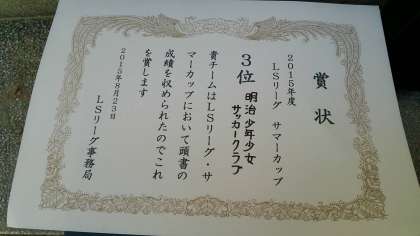 賞状
2015年度
LSリーグ サマーカップ
3位 明治少年少女
サッカークラブ
貴チームはLSリーグ・サ
マーカップにおいて頭書の
成績を収められたのでこれ
を賞します
2015年8月23日
LSリーグ事務局